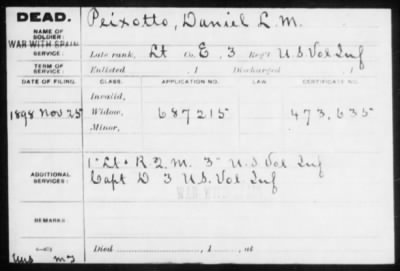 DEAD.
Peixotto, Daniel L. M.
NAME OF SOLDIER:
WAR WITH SPAIN
SERVICE:
Late rank, Lt Co. E, 3 Reg't U S Vol Inf
TERM OF SERVICE:
Enlisted , 1 Discharged , 1
DATE OF FILING. CLASS. APPLICATION NO. LAW. CERTIFICATE NO.
Invalid,
1898 Nov 25 Widow, 687215 473,635
Minor,
ADDITIONAL SERVICES:
1" Lt & R Q. M. 3" U.S Vol Inf
Capt D 3 U.S. Vol Inf
WAR WITH SPAIN
REMARKS:
Died , 1 , at